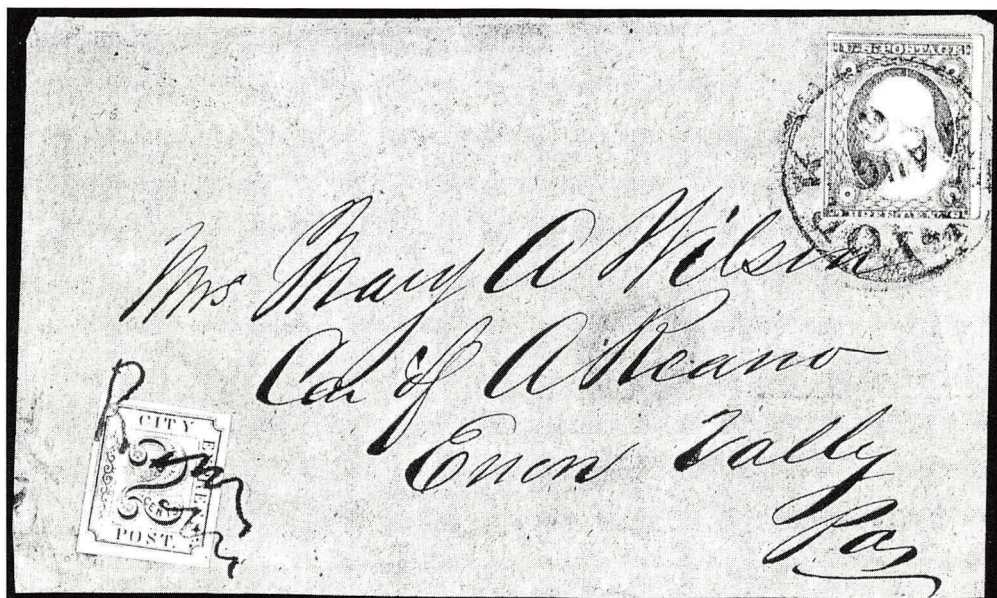 U.S. POSTAGE
THREE CENTS
Mrs Mary A Wilson
Car of A Keano
Enon Vally
Pa
CITY
2
CENTS
POST.